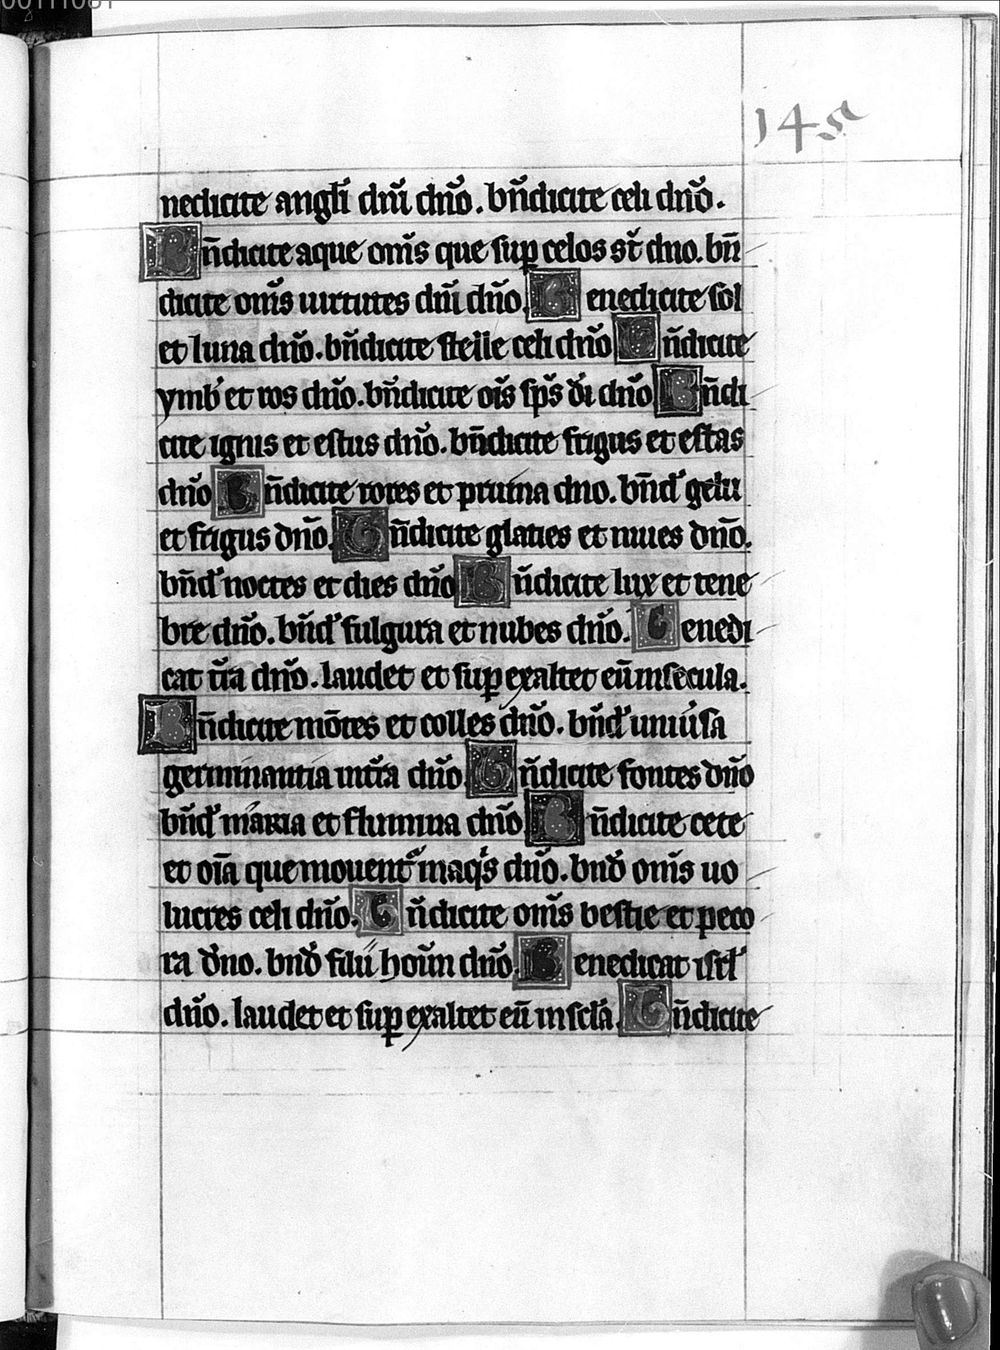 00111081
145
nedicite angli dñi dño. bñdicite celi dño.
Bñdicite aque oms̄ que sup celos st̄ dno. bñ
dicite oms̄ uirtutes dñi dño. Benedicite sol
et luna dño. bñdicite stelle celi dño Bñdicite
ymb' et ros dño. bñdicite ois̄ sps̄ di dño Bñdi
cite ignis et estus dño. bñdicite frigus et estas
dño Bñdicite rores et pruina dno. bñd' gelu
et frigus dño. Bñdicite glacies et niues dño.
bñd' noctes et dies dño Bñdicite lux et tene
bre dño. bñd' fulgura et nubes dño. Benedi
cat tr̄a dño. laudet et sup exaltet eū insecula.
Bñdicite mōtes et colles dño. bñd' uniūsa
germinantia intr̄a dño. Bñdicite fontes dño
bñd' maria et flumina dño Bñdicite cete
et oīa que mouent' inaqis dño. bnd' oms̄ uo
lucres celi dño. Bñdicite oms̄ bestie et peco
ra dno. bnd' filii hoūm dño. Benedicat isrl'
dño. laudet et sup exaltet eū inscl̄a. Bñdicite